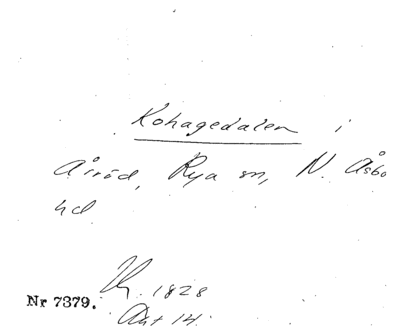 Kohagedalen i
Årröd, Rya sn, N. Åsbo
hd
1828
Nr 7379.
Akt 14.